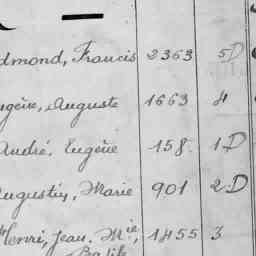 dmond, Francis 2363 5D
ugène, Auguste 1663 4
André, Eugène 158. 1D
ugustin, Marie 901 2D
Henri, Jean, Mie, 1455 3